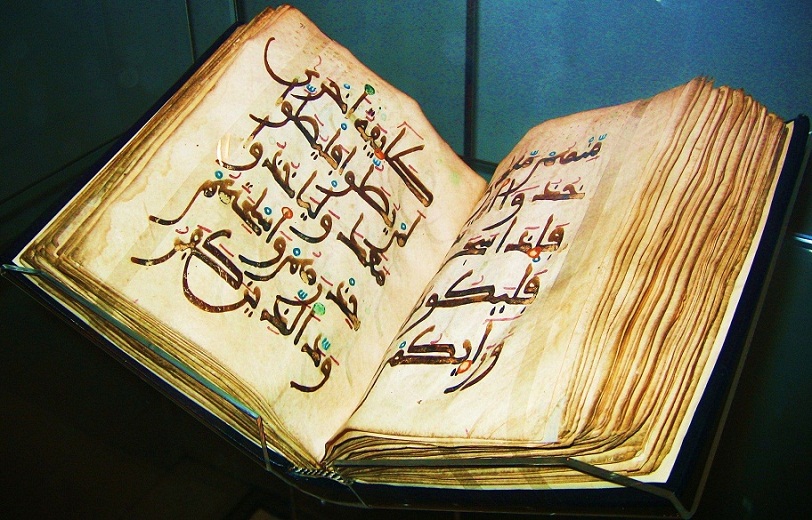 منهم مع
خذوا ا
فاذا سجد
فليكو
ورايكم
طايفة اخرى
لم يصلوا فليصلوا
معك ولياخذوا
حذرهم واسلحتهم
ود الذين كفر